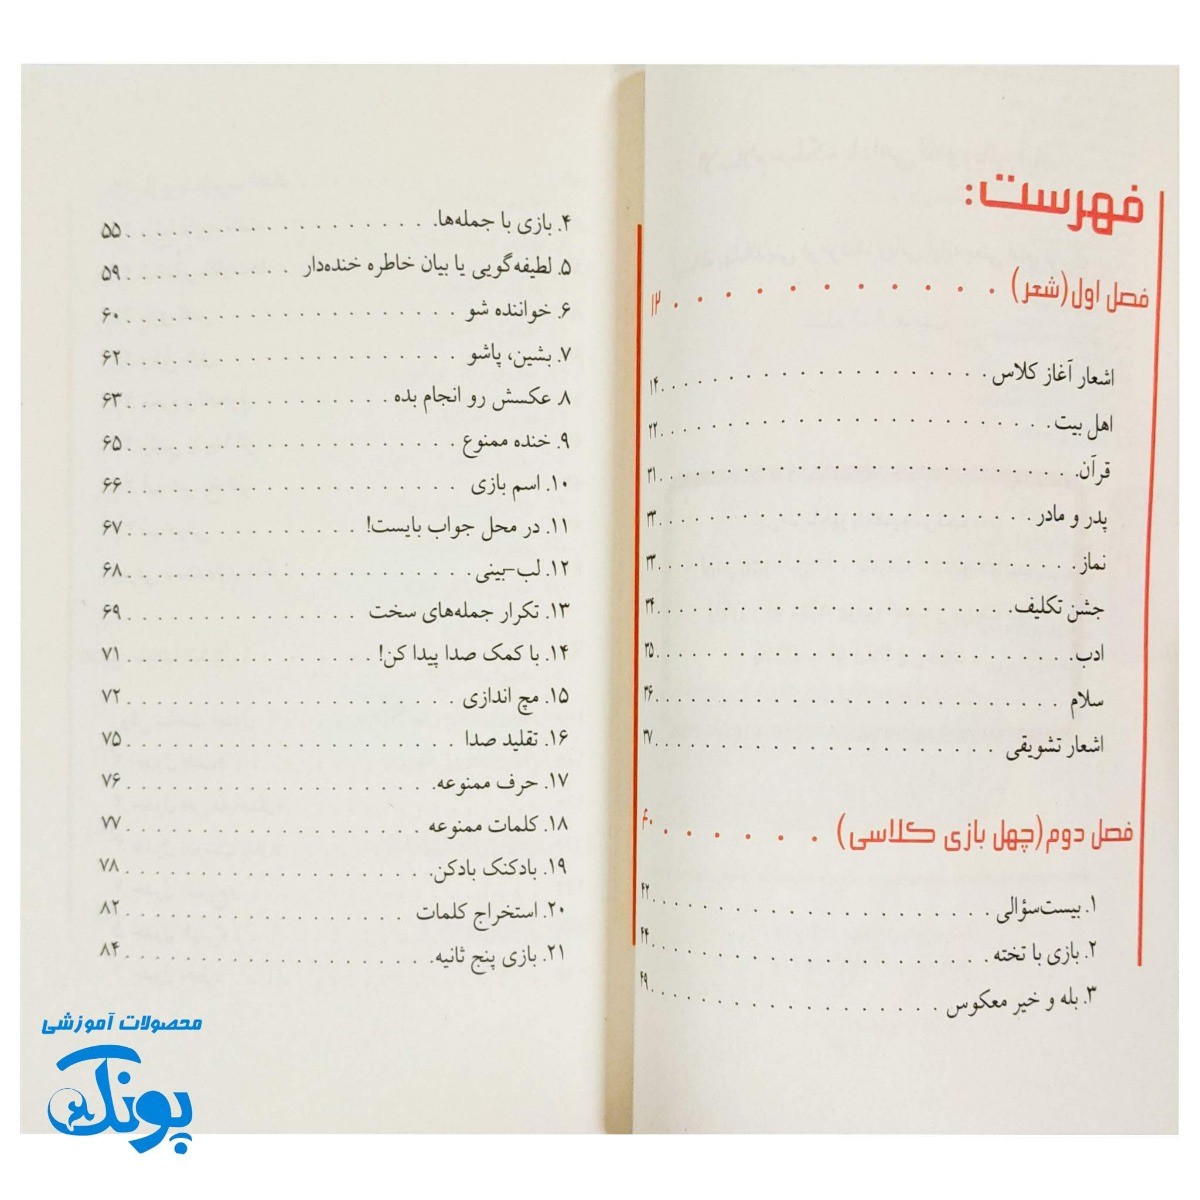 فهرست:
فصل اول(شعر) . . . . . . . . . . . . ۱۲
اشعار آغاز کلاس . . . . . . . . . . . . . . . . ۱۴
اهل بیت . . . . . . . . . . . . . . . . . . . . ۲۲
قرآن. . . . . . . . . . . . . . . . . . . . . . ۳۱
پدر و مادر . . . . . . . . . . . . . . . . . . . ۳۳
نماز. . . . . . . . . . . . . . . . . . . . . . ۳۳
جشن تکلیف. . . . . . . . . . . . . . . . . . ۳۴
ادب. . . . . . . . . . . . . . . . . . . . . . ۳۵
سلام . . . . . . . . . . . . . . . . . . . . . ۳۶
اشعار تشویقی . . . . . . . . . . . . . . . . . ۳۷
فصل دوم(چهل بازی کلاسی) . . . . . . ۴۰
۱. بیست‌سؤالی . . . . . . . . . . . . . . . . . ۴۲
۲. بازی با تخته . . . . . . . . . . . . . . . . . ۴۴
۳. بله و خیر معکوس . . . . . . . . . . . . . . ۴۹
۴. بازی با جمله‌ها. . . . . . . . . . . . . . . . . ۵۵
۵. لطیفه‌گویی یا بیان خاطره خنده‌دار . . . . . . . . . ۵۹
۶. خواننده شو . . . . . . . . . . . . . . . . . ۶۰
۷. بشین، پاشو . . . . . . . . . . . . . . . . . ۶۲
۸. عکسش رو انجام بده . . . . . . . . . . . . . ۶۳
۹. خنده ممنوع . . . . . . . . . . . . . . . . . ۶۵
۱۰. اسم بازی . . . . . . . . . . . . . . . . . ۶۶
۱۱. در محل جواب بایست! . . . . . . . . . . . . ۶۷
۱۲. لب-بینی . . . . . . . . . . . . . . . . . . ۶۸
۱۳. تکرار جمله‌های سخت . . . . . . . . . . . . ۶۹
۱۴. با کمک صدا پیدا کن! . . . . . . . . . . . . ۷۱
۱۵. مچ اندازی . . . . . . . . . . . . . . . . . ۷۲
۱۶. تقلید صدا . . . . . . . . . . . . . . . . . ۷۵
۱۷. حرف ممنوعه. . . . . . . . . . . . . . . . ۷۶
۱۸. کلمات ممنوعه . . . . . . . . . . . . . . . ۷۷
۱۹. بادکنک بادکن. . . . . . . . . . . . . . . . ۷۸
۲۰. استخراج کلمات . . . . . . . . . . . . . . . ۸۲
۲۱. بازی پنج ثانیه. . . . . . . . . . . . . . . . ۸۴
محصولات آموزشی
پونک